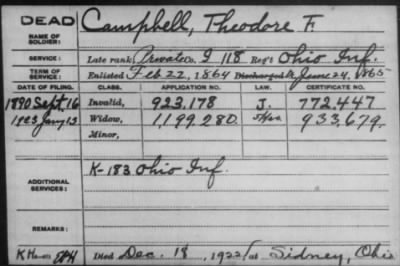 DEAD Campbell, Theodore F.
NAME OF SOLDIER:
SERVICE: Late rank, Private Co. I 118 Reg't Ohio Inf.
TERM OF SERVICE: Enlisted Feb 22, 1864 Discharged June 24, 1865
DATE OF FILING. CLASS. APPLICATION NO. LAW. CERTIFICATE NO.
1890 Sept. 16 Invalid, 923,178 J. 772,447
1923 Jany 13 Widow, 1,199,280 933,679.
Minor,
ADDITIONAL SERVICES: K-183 Ohio Inf.
REMARKS:
Died Dec. 18, 1922 at Sidney, Ohio